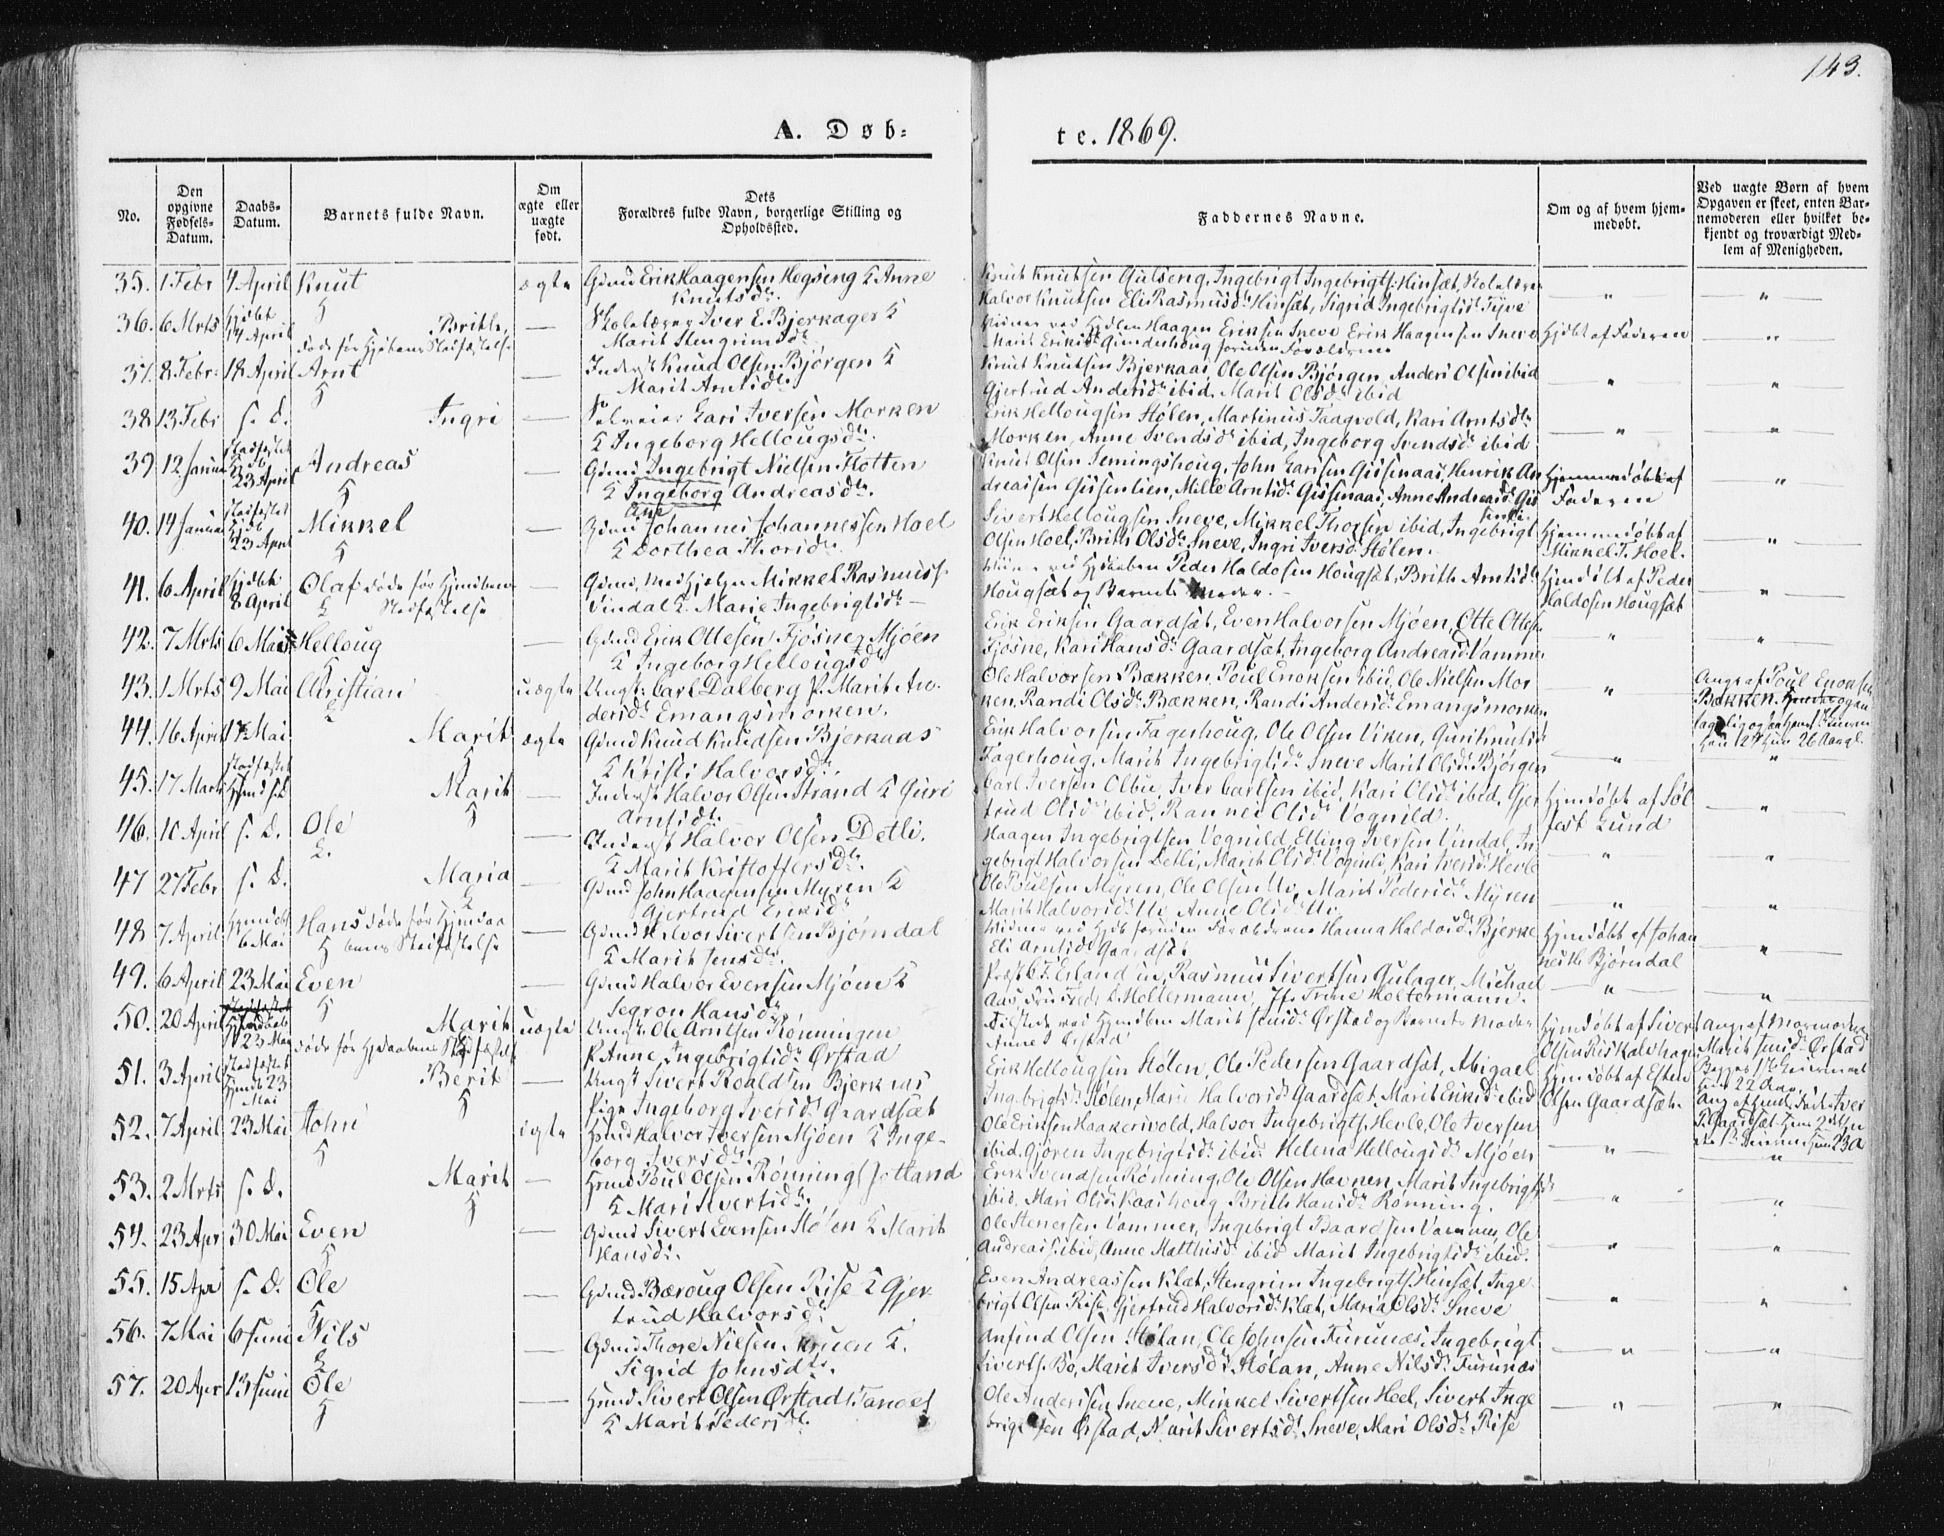 143.
A. Døb=
te. 1869.
No.
Den opgivne Fødsels-Datum.
Daabs-Datum.
Barnets fulde Navn.
Om ægte eller uægte født.
Dets Forældres fulde Navn, borgerlige Stilling og Opholdssted.
Faddernes Navne.
Om og af hvem hjemmedøbt.
Ved uægte Børn af hvem Opgaven er skeet, enten Barnemoderen eller hvilket bekjendt og troværdigt Medlem af Menigheden.
35. 1 Febr 4 April Knut ægte Gmd Erik Haagensen Hegseng & Anne Knutsdr.
Knut Knutsen Gulseng, Ingebrigt Ingebrigts. Hinsæt, Skolelærer
Halvor Knutsen Eli Rasmusdr Hinsæt, Sigrid Ingebrigtsdr
36. 6 Mrts Hjdbt 14 April Brithe, døde før Hjdbens Stadfæstelse — Skolelærer Iver E. Bjerkager &
Marit Stengrimsdr
Haagen Eriksen Sneve Erik Haagensen Sneve Hjdbt af Faderen
Marit Eriksdr Gunderhoug foruden Forældrene
37. 8 Febr. 18 April Arnt — Inderst Knud Olsen Bjørgen &
Marit Arntsdr.
Knut Knutsen Bjerkaas, Ole Olsen Bjørgen, Anders Olsen ibid
Gjertrud Andersdr ibid, Marit Olsdr ibid
38 13 Febr s. D. Ingri — Selveier Lars Iversen Morken
& Ingeborg Hellougsdr.
Erik Hellougsen Stølen, Martinus Taagvold, Kari Arntsdr
Morken, Anne Svendsdr ibid, Ingeborg Svendsdr ibid
39. 12 Januar 23 April Andreas — Gmd Ingebrigt Nielsen Flotten
& Ingeborg Andreasdr.
Ane
Knut Olsen Semingshoug, John Larssen Gissenaas, Henrik An
dreassen Gissenlien, Mille Arntsdr Gissinaas, Anne Andreasdr Gis
Hjemmedøbt af Faderen
40. 14 Januar 23 April Mikkel — Gmd Johannes Johannessen Hoel
& Dorthea Thorsdr.
Sivert Hellougsen Sneve, Mikkel Thorsen ibid, Ingebrigt
Olsen Hoel, Brith Olsdr Sneve, Ingri Iversdr Stølen.
Hjemmedøbt af Mikkel T. Hoel.
41. 6 April Hjdbt 8 April Olaf døde før Hjemdbens Stadfæstelse — Mikkel Rasmuss.
Vindal & Marie Ingebrigtsdr
Peder Haldosen Hougsæt, Brith Arntsdr
Hougsæt og Barnets Moder.
Hjemdbt af Peder Haldosen Hougsæt
42. 7 Mrts 6 Mai Helloug — Gmd Erik Ottesen Fjosne, Mjøen
& Ingeborg Hellougsdr
Erik Eriksen Gaardsæt, Even Halvorsen Mjøen, Otte Ottes.
Fjosne, Kari Hansdr Gaardsæt, Ingeborg Andreasdr Vammer
43. 1 Mrts 9 Mai Christian uægte Ungk: Carl Dalberg P. Marit An
dersdr Emangsmorken.
Ole Halvorsen Bækken, Poul Enoksen ibid, Ole Nielsen Mor
ken, Randi Olsdr Bækken, Randi Andersdr Emangsmorken
Ang: af Poul Enoksen Bækken
44. 16 April 17 Mai Marit ægte Gmd Knud Knudsen Bjerkaas
& Kristi Halvorsdr.
Erik Halvorsen Fagerhoug, Ole Olsen Viken, Guri Knutsdr
Fagerhoug, Marit Ingebrigtsdr Sneve Marit Olsdr Bjørgen
45. 17 Marts Marit — Inderst Halvor Olsen Strand & Guri
Arntsdr.
Carl Iversen Olbu, Iver Carlsen ibid, Kari Olsdr ibid, Gjer
trud Olsdr ibid, Rannei Olsdr Vognild.
Hjemdøbt af Sølfest Lund
46. 10 April s. D. Ole — Inderst Halvor Olsen Detli.
& Marit Kristoffersdr.
Haagen Ingebrigtsen Vognild, Elling Iversen Vindal, In
gebrigt Halvorsen Detli, Marit Olsdr Vognild, Kari Iversdr Hevle
47 27 Febr s. D. Maria — Gmd John Haagensen Myren &
Gjertrud Eriksdr
Ole Poulsen Myren, Ole Olsen Uv, Marit Pedersdr Myren
Marit Halvorsdr Uv Anne Olsdr Uv.
48 7 April 6 Mai Hans døde før Hjemdaabens Stadfæstelse — Gmd Halvor Sivertsen Bjørndal
& Marit Jensdr.
Hanna Haldosdr Bjerke
Eli Arntsdr Gaardsæt
Hjemdøbt af Johan Bjørndal
49. 6 April 23 Mai Even — Gmd Halvor Evensen Mjøen &
Segron Hansdr.
Præst C. F. Erlandsen, Rasmus Sivertsen Gulager, Michael
Aas, Holtermann, Jfr Trine Holtermann.
50. 20 April 23 Mai Marit døde før Hjdaabens Stadfæstelse uægte Ungk. Ole Arntsen Rønningen
P. Anne Ingebrigtsdr Ørstad
Marit Jensdr Ørstad og Barnets Moder
Anne I Ørstad
Hjemdøbt af Sivert Olsen Riskalvhagen
Ang: af Mormoderen Marit Jensdr Ørstad
51. 3 April 23 Mai Berit — Ungk Sivert Roaldsen Bjerkaas
Pige Ingeborg Iversdr Gaardsæt
Erik Hellougsen Stølen, Ole Pedersen Gaardsæt, Abigael
Ingebrigtsdr Stølen, Mari Halvorsdr Gaardsæt, Marit Eriksdr ibid
Hjemdøbt af Esten Olsen Gaardsæt.
52. 7 April 23 Mai John ægte Gmd Halvor Iversen Mjøen & Inge
borg Iversdr.
Ole Eriksen Haakersvold, Halvor Ingebrigts. Hevle, Ole Iversen
ibid, Gjøren Ingebrigtsdr ibid, Helena Hellougsdr Mjøen
53. 2 Mrts s. D. Marit — Gmd Poul Olsen Rønning
& Mari Sivertsdr.
Erik Svendsen Rønning, Ole Olsen Havnen, Marit Ingebrigtsdr
ibid, Mari Olsdr Kaashoug Brith Hansdr Rønning.
54. 23 Apr 30 Mai Even — Gmd Sivert Evensen Stølen & Marit
Hansdr.
Ole Stenersen Vammer, Ingebrigt Baardsen Vammer, Ole
Andreass. ibid, Anne Matthisdr ibid Marit Ingebrigtsdr ibid.
55. 15 Apr s. D. Ole — Gmd Bæroug Olsen Rise & Gjer
trud Halvorsdr
Even Andreassen Klæt, Stengrim Ingebrigts. Hinsæt, Inge
brigt Olsen Rise, Gjertrud Halvorsdr Klæt, Maria Olsdr Sneve
56. 7 Mai 6 Juni Nils — Gmd Thore Nielsen Kruen &
Sigrid Johnsdr.
Anfind Olsen Stølan, Ole Johnsen Furunæs, Ingebrigt
Siverts. Bo, Marit Iversdr Stølan, Anne Nilsdr Furunæs
57. 20 Apr 13 Juni Ole — Gmd Sivert Olsen Ørstad
& Marit Pedersdr.
Ole Andersen Sneve, Mikkel Sivertsen Hoel, Sivert Inge
brigtsen Ørstad, Marit Sivertsdr Sneve, Mari Olsdr Rise